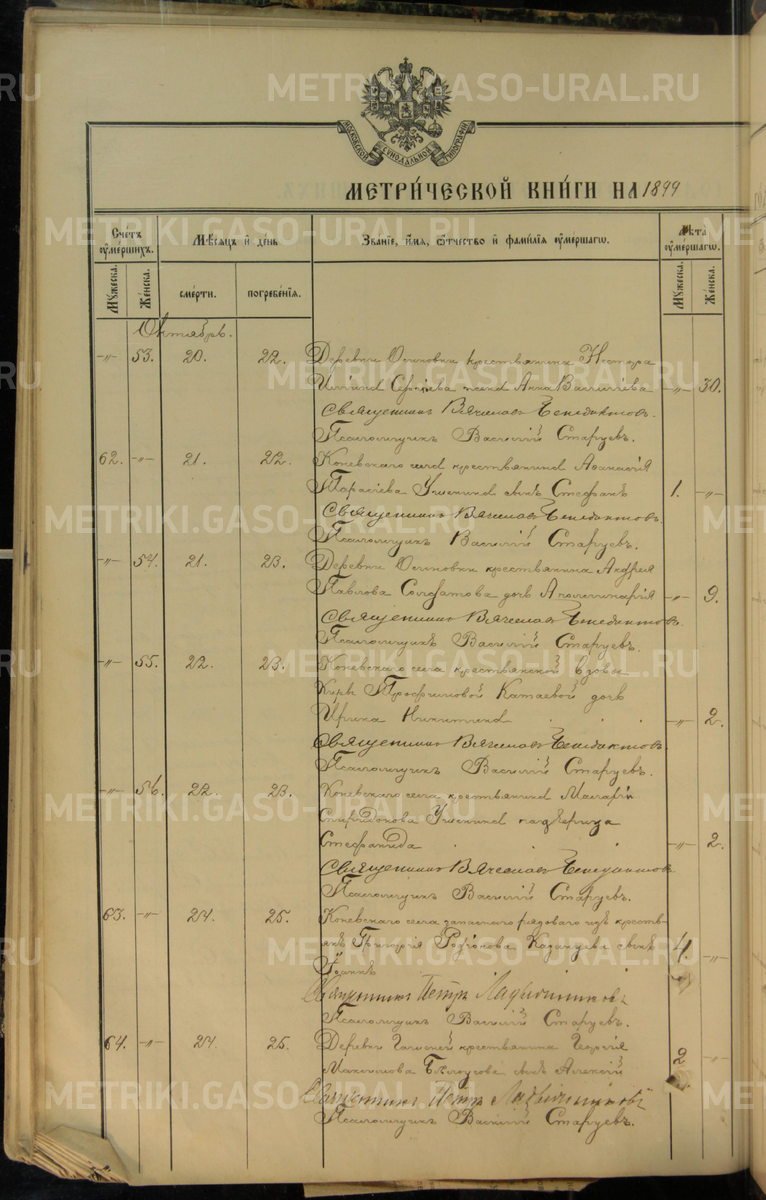 МОСКОВСКОЙ СѴНОДАЛЬНОЙ ТИПОГРАФІИ
МЕТРИ́ЧЕСКОЙ КНИ́ГИ НА 1899
Сче́тъ ᲂу҆ме́ршихъ.
Мѣ́сяцъ и҆ де́нь
Зва́ніе, и҆́мя, ѻ҆́тчество и҆ фами́лія ᲂу҆ме́ршагѡ.
Лѣ́та ᲂу҆ме́ршагѡ.
Мꙋ́жеска.
Же́нска.
сме́рти.
погребе́нія.
Мꙋ́жеска.
Же́нска.
Октябрь.
-"- 53. 20. 22. Деревни Осиновки крестьянина Нестора
Сергіева жена Анна Васильева -"- 30.
Священникъ Вячеславъ Бенедиктовъ.
Псаломщикъ Василій Старцевъ.
62. -"- 21. 22. Коневскаго села крестьянина Аѳанасія
Тарасіева Ушенина сынъ Стефанъ 1. -"-
Священникъ Вячеславъ Бенедиктовъ.
Псаломщикъ Василій Старцевъ.
-"- 54. 21. 23. Деревни Осиновки крестьянина Андрея
Павлова Солдатова дочь Аполлинарія -"- 9.
Священникъ Вячеславъ Бенедиктовъ.
Псаломщикъ Василій Старцевъ.
-"- 55. 22. 23. Коневскаго села крестьянской вдовы
Киры Трофимовой Катаевой дочь
Ирина -"- 2.
Священникъ Вячеславъ Бенедиктовъ.
Псаломщикъ Василій Старцевъ.
-"- 56. 22. 23. Коневскаго села крестьянина Макарія
Спиридонова Ушенина падчерица
Стефанида -"- 2.
Священникъ Вячеславъ Бенедиктовъ.
Псаломщикъ Василій Старцевъ.
63. -"- 24. 25. Коневскаго села запаснаго рядоваго изъ кресть-
янъ Григорія Родіонова Казанцева сынъ 4. -"-
Іоаннъ
Священникъ Петръ
Псаломщикъ Василій Старцевъ.
64. -"- 24. 25. Деревни крестьянина Георгія
Максимова Бѣлоусова сынъ Алексій 2. -"-
Священникъ Петръ
Псаломщикъ Василій Старцевъ.
METRIKI.GASO-URAL.RU